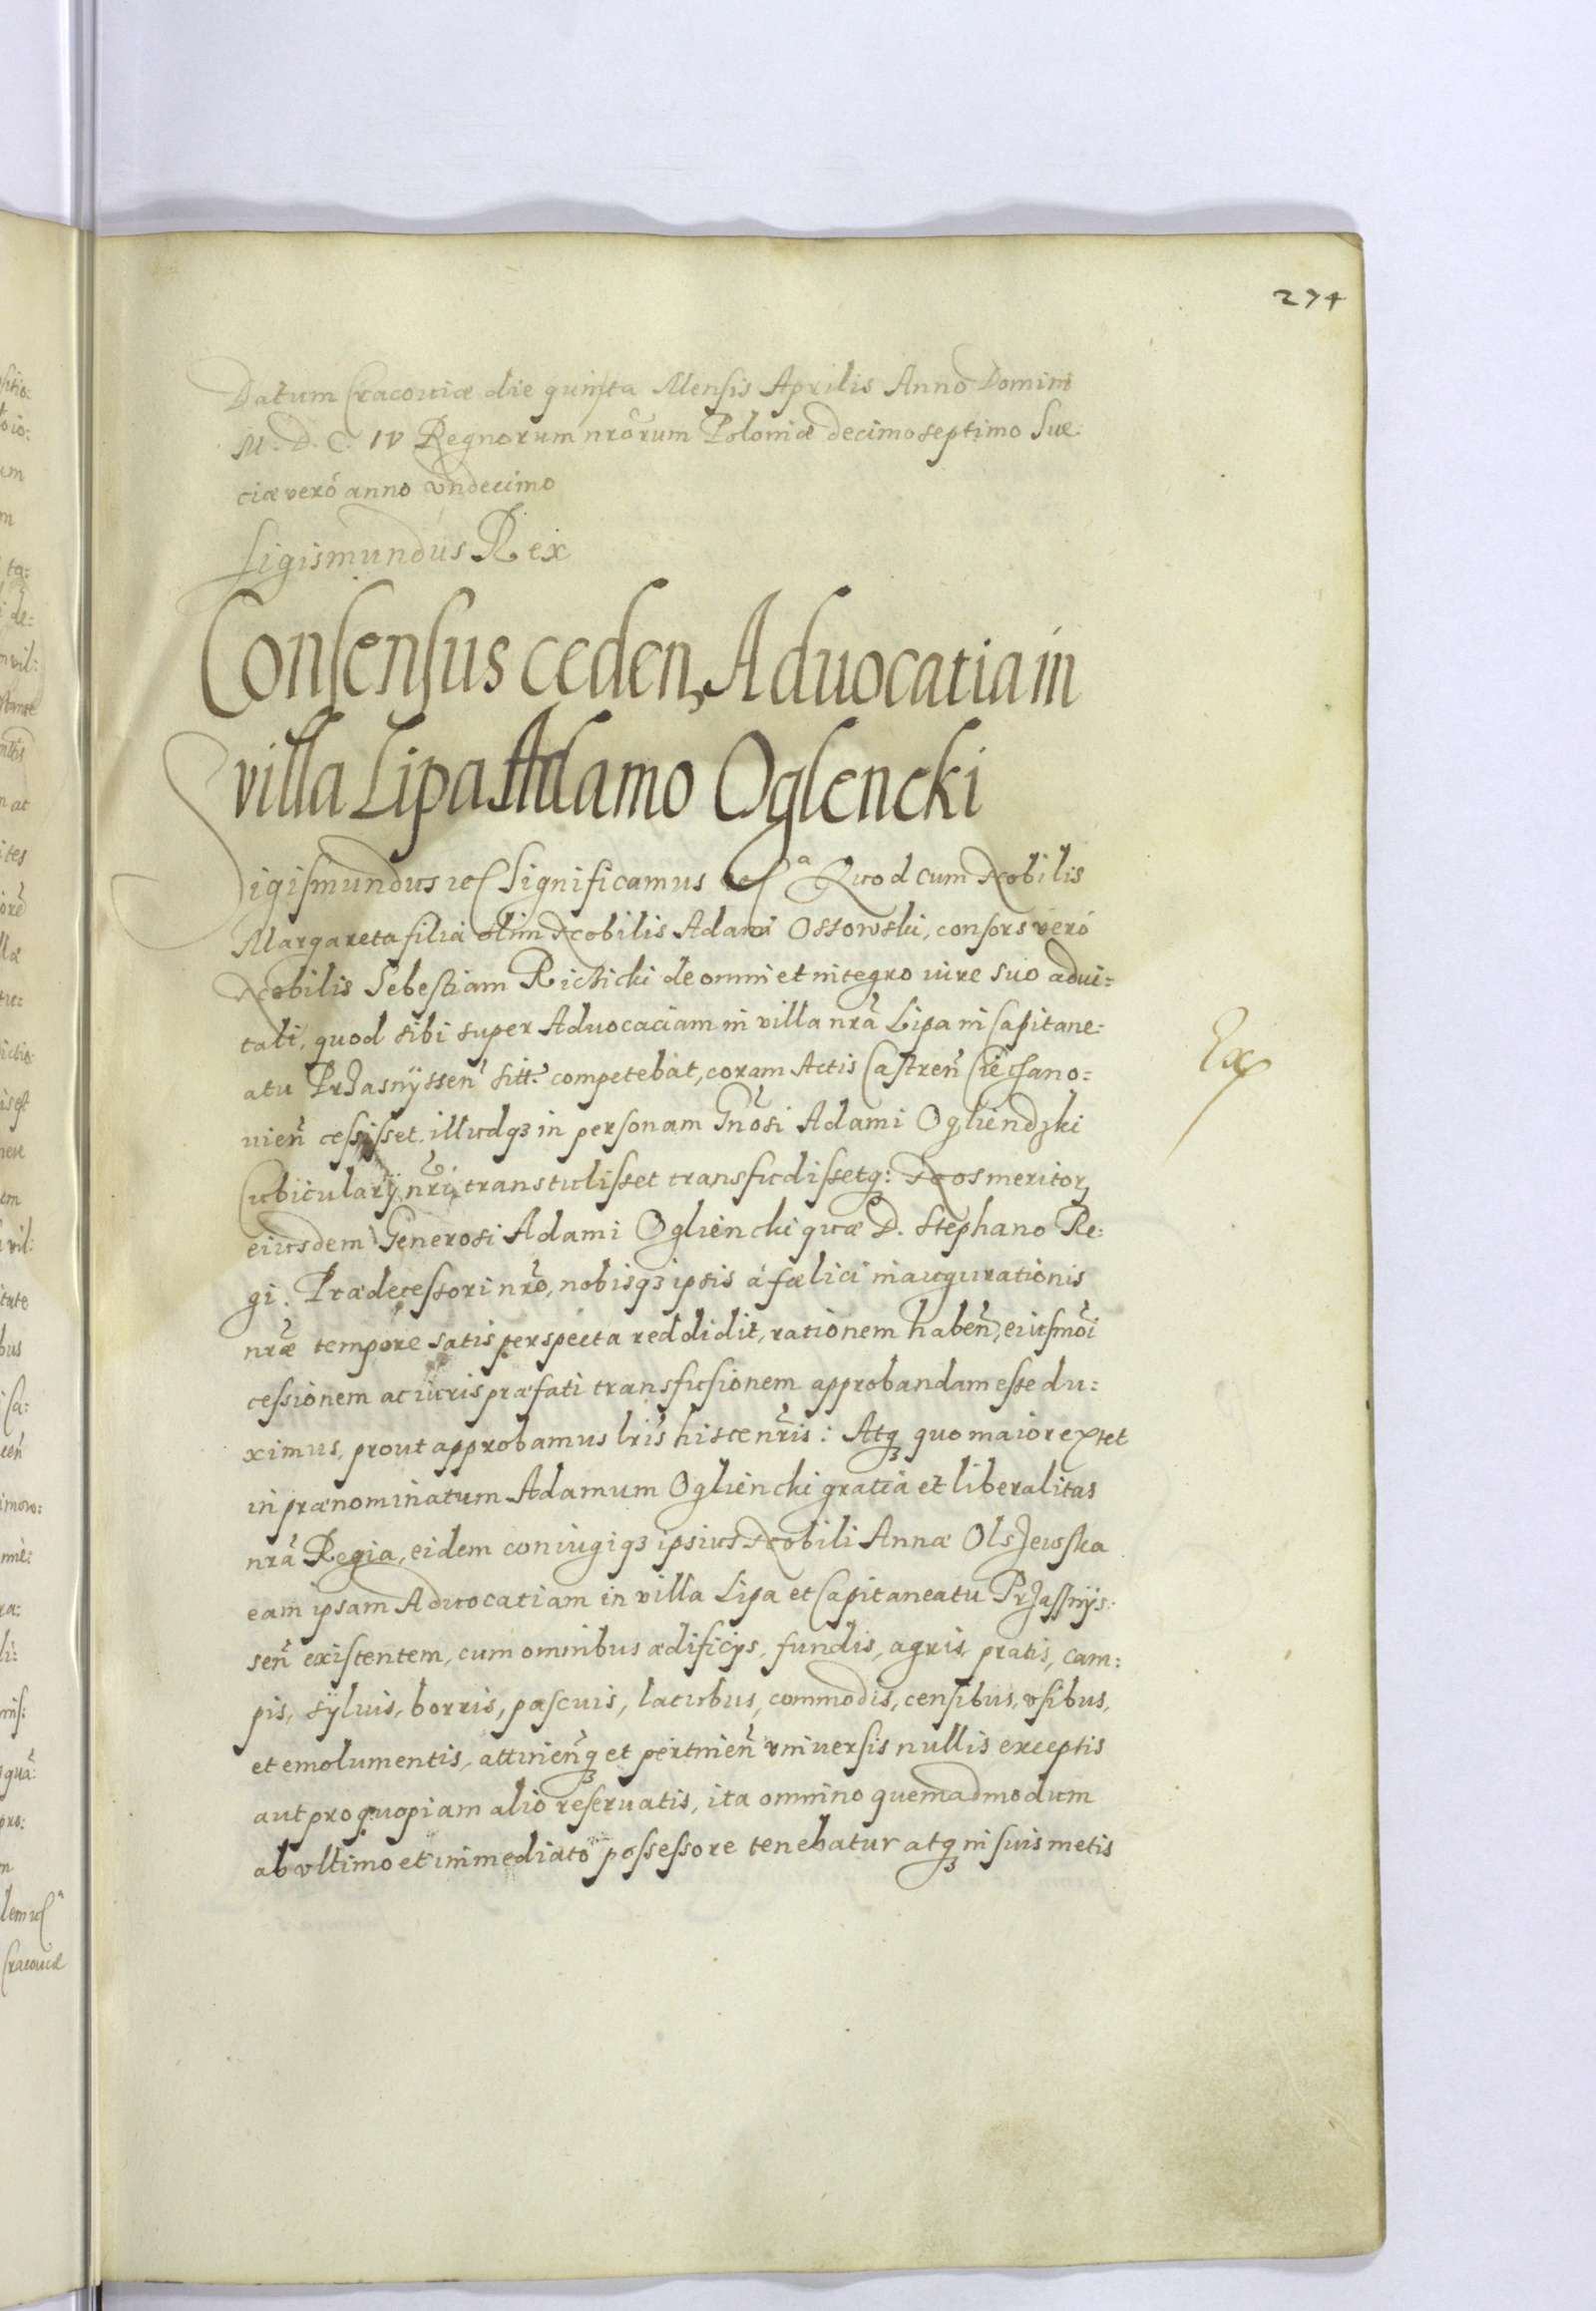 274
Datum Cracouiæ die quinta Mensis Aprilis Anno Domini
M. D. C. IV Regnorum nrorum Poloniæ decimoseptimo Sue:
ciæ veró anno vndecimo
Sigismundus Rex
Consensus ceden. Aduocatia in
villa Lipa Adamo Oglencki
Sigismundus etc Significamus etc a Quod cum Nobilis
Margareta filia olim Nobilis Adami Ossowski, consors veró
Nobilis Sebestiam de omni et integro iure suo adui=
tali, quod sibi super Aduocaciam in villa nrã Lipa in Capitane:
atu Przasnÿssen sitt. competebat, coram Actis Castren Ciechano=
uien cessisset. illudqȝ in personam Gnosi Adami Ogliendzki
Cubicularÿ nri, transtulisset transfudissetq: Nos meritorꝫ
eiusdem Generosi Adami Ogliencki quæ D. Stephano Re:
gi. Prædecessori nro, nobisqȝ ipsis á fælici inaugurationis
nræ tempore satis perspecta reddidit, rationem haben, eiusmoi
cessionem ac iuris præfati transfusionem approbandam esse du:
ximus, prout approbamus lris hisce nris: Atqȝ quo maior extet
in prænominatum Adamum Ogliencki gratia et liberalitas
nrã Regia, eidem coniugiqȝ ipsius Nobili Annæ Olszewska
eam ipsam Aduocatiam in villa Lipa et Capitaneatu Przassnÿs:
sen existentem, cum omnibus ædificÿs, fundis, agris, pratis, cam:
pis, sÿluis, borris, pascuis, lacubus, commodis, censibus, vsibus,
et emolumentis, attinenqȝ et pertinen vniuersis nullis exceptis
aut pro quopiam alio reseruatis, ita omnino quemadmodum
ab vltimo et immediato possessore tenebatur atqȝ in suis metis
Ex